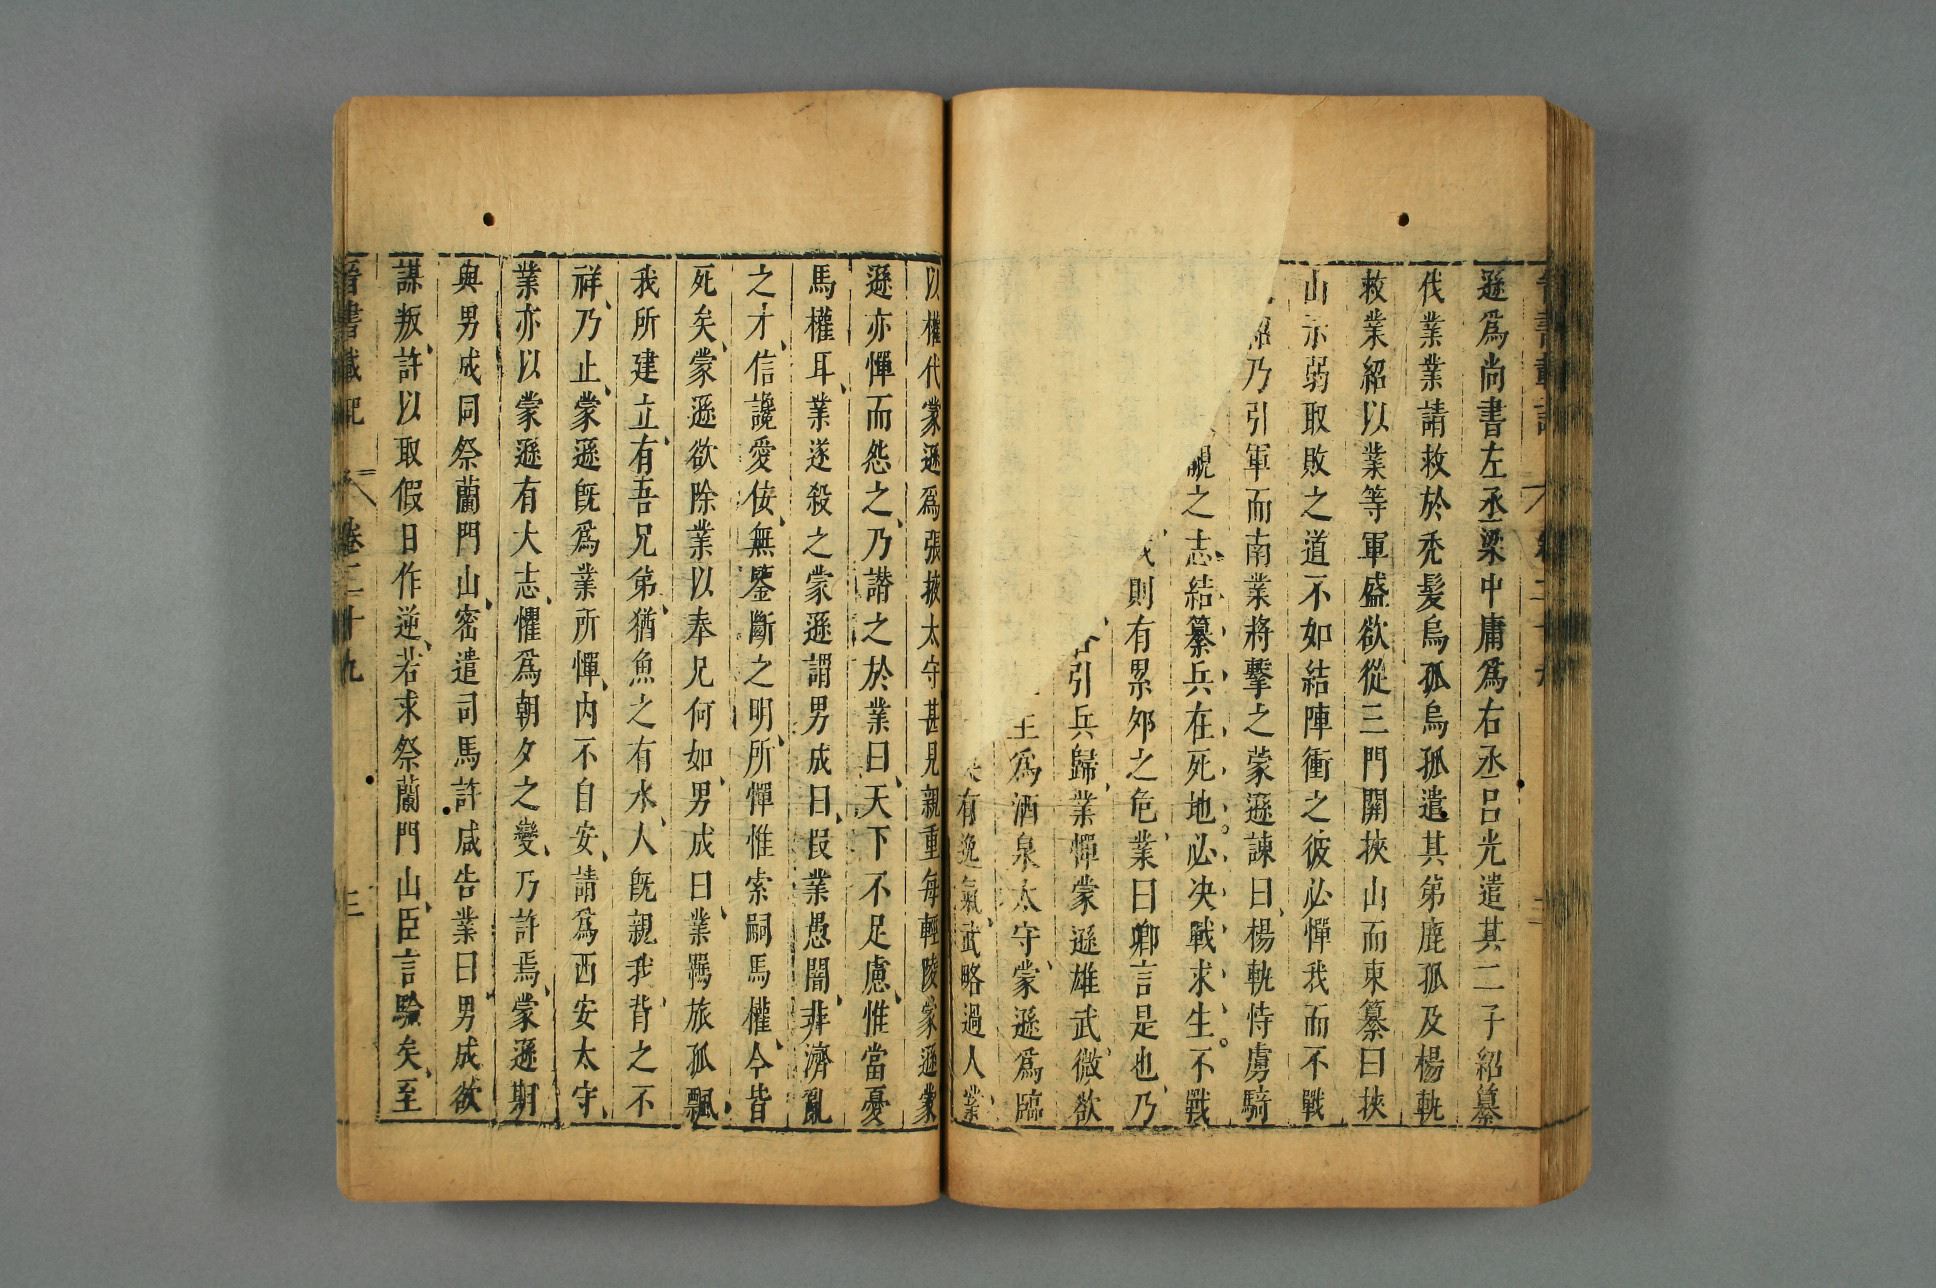 晉書載記 卷二十九 二
遜爲尚書左丞梁中庸爲右丞呂光遣其二子紹纂
伐業業請救於禿髮烏孤烏孤遣其弟鹿孤及楊軌
救業紹以業等軍盛欲從三門關挾山而東纂曰挾
山示弱取敗之道不如結陣衝之彼必憚我而不戰
紹乃引軍而南業將擊之蒙遜諫曰楊軌恃虜騎
覦之志紹纂兵在死地必决戰求生不戰
則有累夘之危業曰卿言是也乃
引兵歸業憚蒙遜雄武微欲
王爲酒泉太守蒙遜爲臨
有逸氣武略過人業
以權代蒙遜爲張掖太守甚見親重每輕陵蒙遜蒙
遜亦憚而怨之乃譖之於業曰天下不足慮惟當憂
馬權耳業遂殺之蒙遜謂男成曰叚業愚闇非濟亂
之才信讒愛佞無鑒斷之明所憚惟索嗣馬權今皆
死矣蒙遜欲除業以奉兄何如男成曰業羇旅孤飄
我所建立有吾兄弟猶魚之有水人旣親我背之不
祥乃止蒙遜旣爲業所憚內不自安請爲西安太守
業亦以蒙遜有大志懼爲朝夕之變乃許焉蒙遜期
與男成同祭蘭門山密遣司馬許咸告業曰男成欲
謀叛許以取假日作逆若求祭蘭門山臣言驗矣至
晉書載記 卷二十九 三